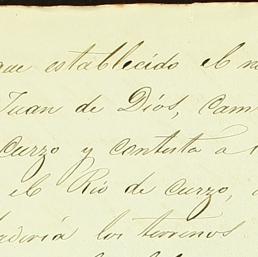 que establecido el
Juan de Dios, cam
curzo y contesta a
el Rio de curzo,
los terrenos